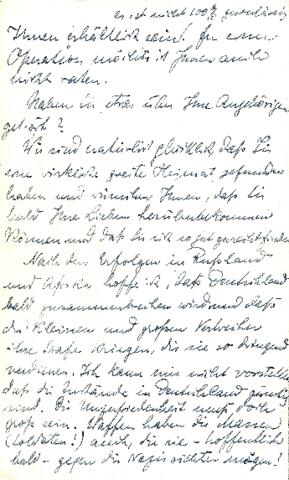 es ist nicht 100% zuverlässig
Ihnen erhältlich sein? Zu einer
Operation möchte ich Ihnen auch
nicht raten.
Haben Sie etwas über Ihre Angehörigen
gehört?
Wir sind natürlich glücklich, daß Sie
eine wirkliche zweite Heimat gefunden
haben und wünschen Ihnen, daß Sie
bald Ihre Lieben herüberbekommen
können und daß Sie sich so gut
Nach den Erfolgen in Rußland
und Afrika hoffe ich, daß Deutschland
bald zusammenbrechen wird und daß
die kleinen und großen Verbrecher
ihre Strafe kriegen, die sie so dringend
verdienen. Ich kann mir nicht vorstellen
daß die Zustände in Deutschland
sind. Die Unzufriedenheit muß doch
groß sein. Waffen haben die Massen
(Soldaten!) auch, die sie - hoffentlich
bald - gegen die Nazis richten mögen!